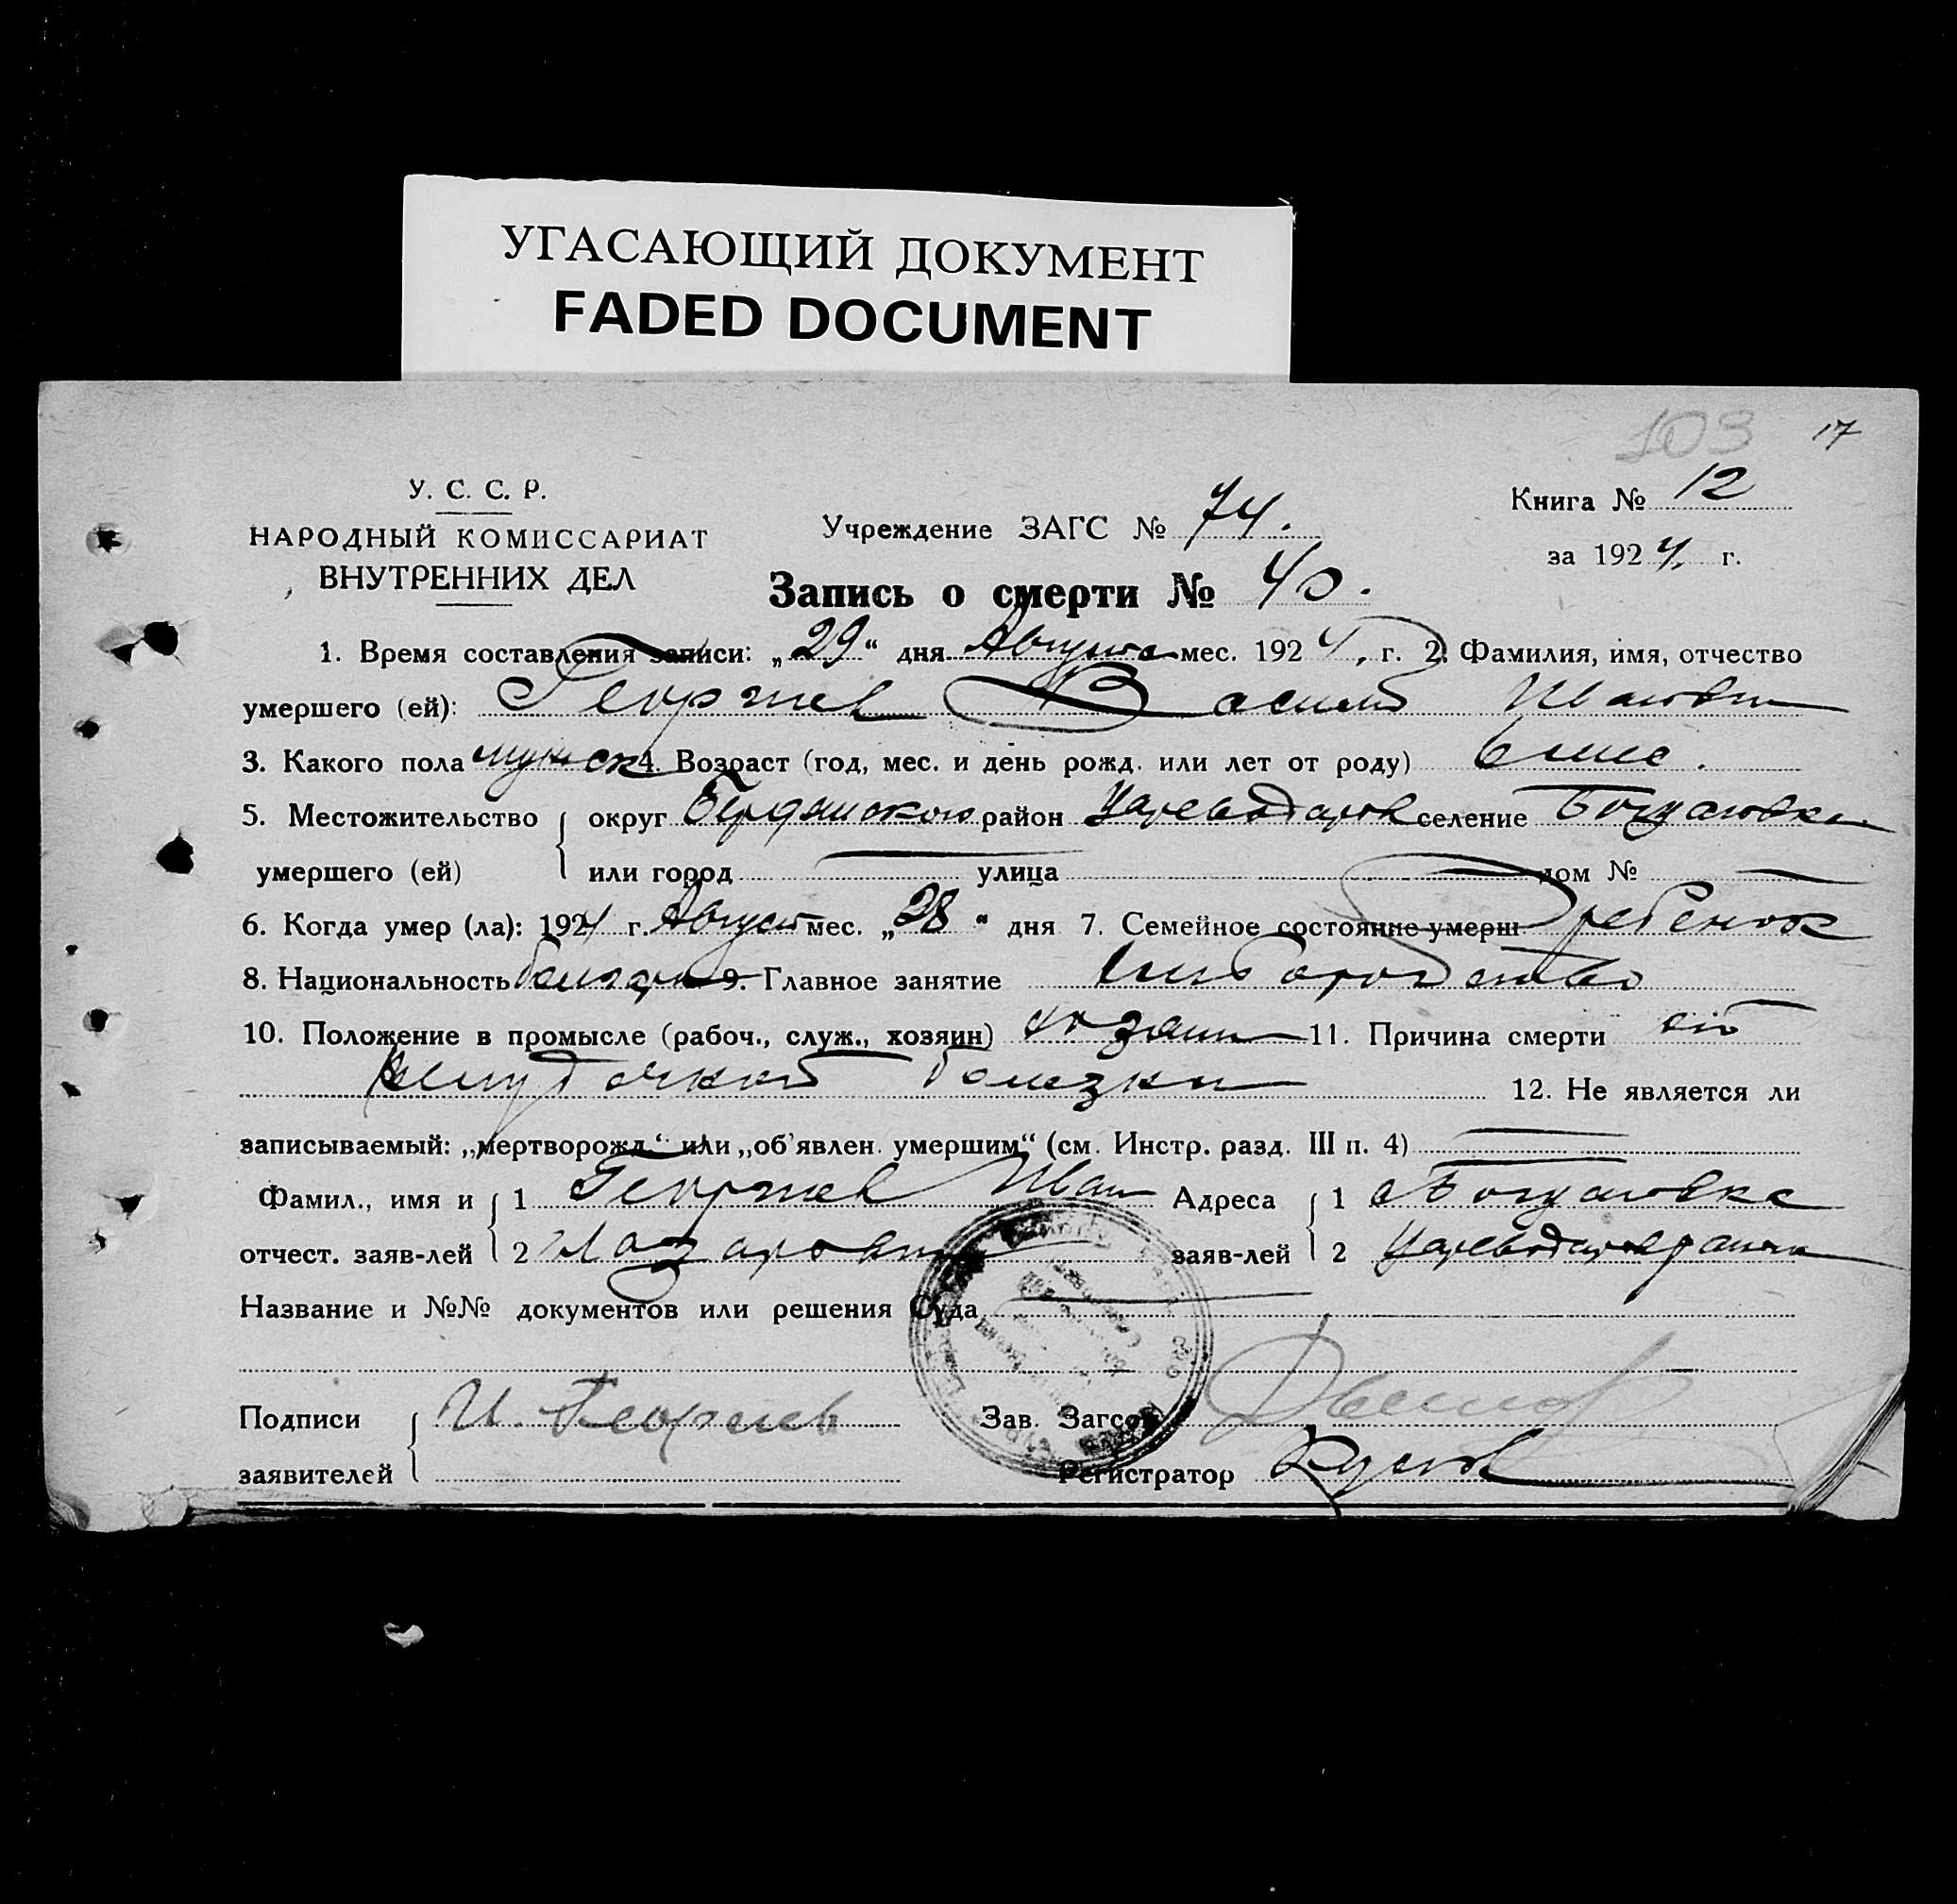 УГАСАЮЩИЙ ДОКУМЕНТ
FADED DOCUMENT
103 17
У. С. С. Р.
НАРОДНЫЙ КОМИССАРИАТ
ВНУТРЕННИХ ДЕЛ
Учреждение ЗАГС № 74.
Книга № 12
за 1924 г.
Запись о смерти № 40.
1. Время составления записи: „29“ дня Августа мес. 1924, г. 2. Фамилия, имя, отчество
умершего (ей): Георгиев Василий Иванович
3. Какого пола мужск 4. Возраст (год, мес. и день рожд. или лет от роду) 6 мес.
5. Местожительство округ Бердянского район Цареводаров селение Богдановка
умершего (ей) или город улица дом №
6. Когда умер (ла): 1924 г. Август мес. „28“ дня 7. Семейное состояние умерш ребенок
8. Национальность болгарин 9. Главное занятие хлеборобство
10. Положение в промысле (рабоч., служ., хозяин) хозяин 11. Причина смерти от
желудочной болезни 12. Не является ли
записываемый: „мертворожд.“ или „об'явлен. умершим“ (см. Инстр. разд. III п. 4)
Фамил., имя и 1 Георгиев Иван Адреса 1 с Богдановка
отчест. заяв-лей 2 Назарович заяв-лей 2 Цареводаров района
Название и №№ документов или решения Суда
Подписи И. Георгиев Зав. Загсом
заявителей Регистратор